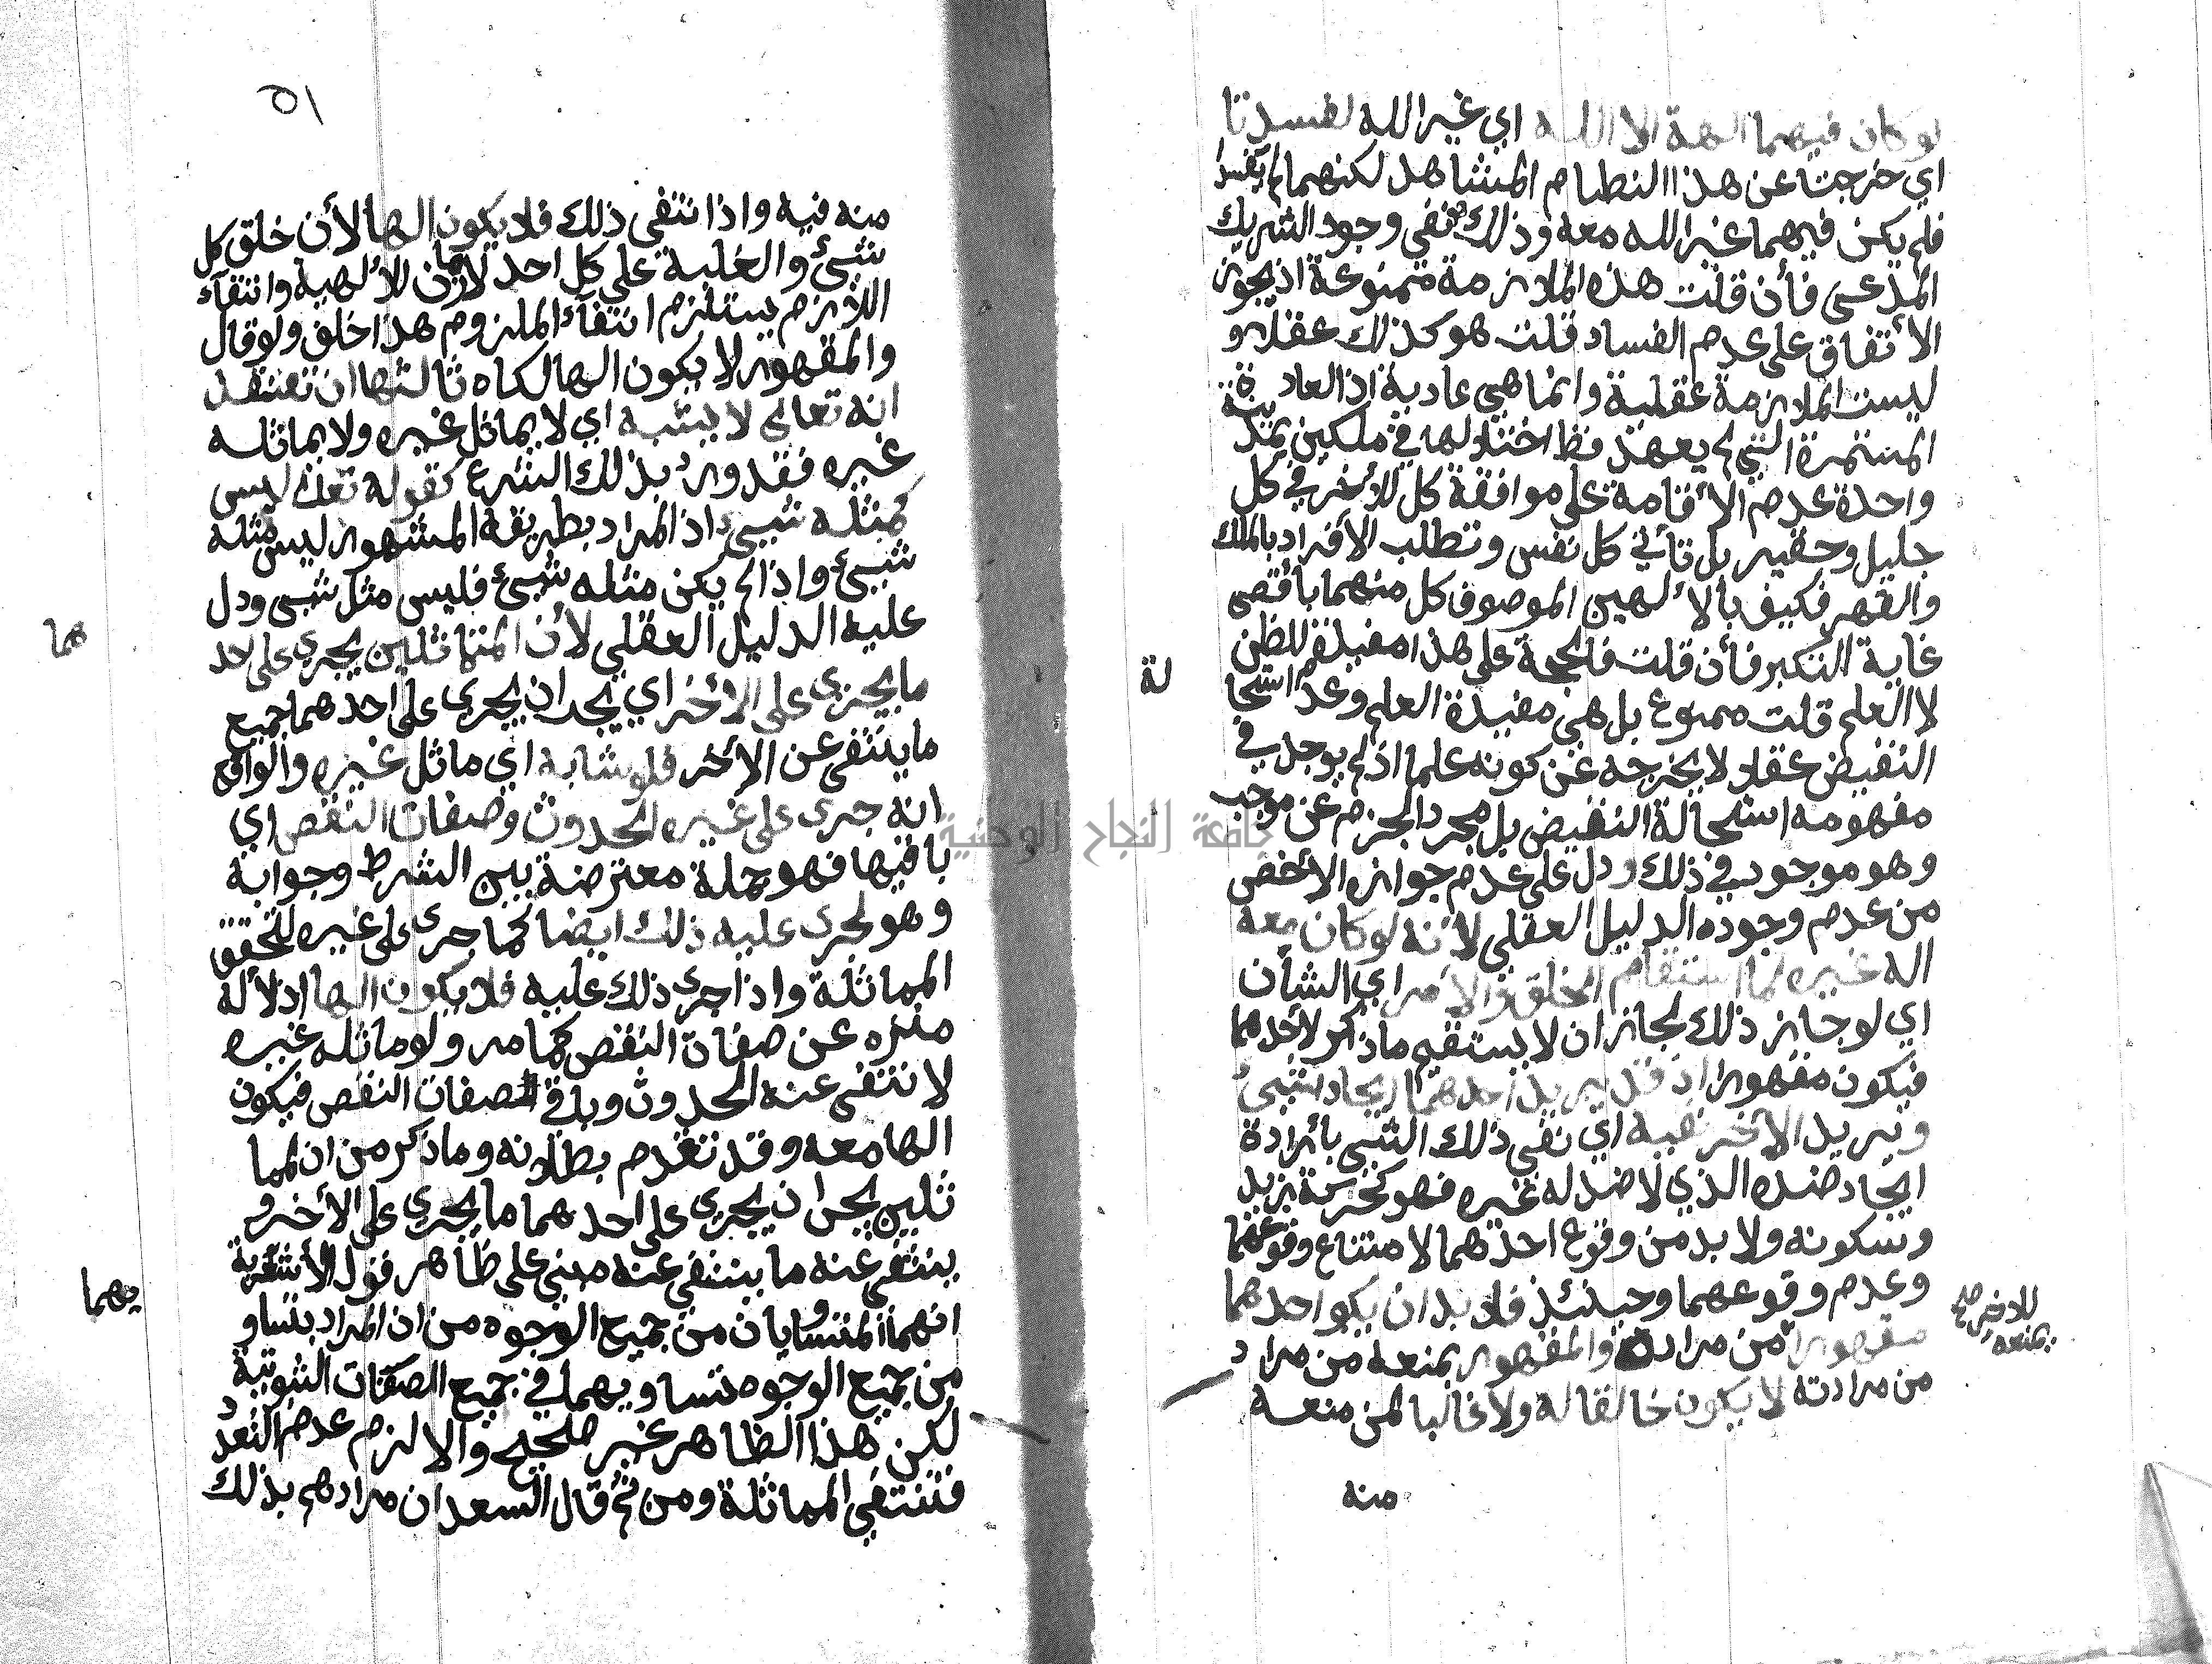 لو كان فيهما الهة الا الله اي غير الله لفسدتا
اي خرجتا عن هذا النظام المشاهد لكنهما لم تفسدا
فلم يكن فيهما غير الله معه وذلك نفي وجود الشريك
المدعى فأن قلت هذه الملازمة ممنوعة اذ يجوز
الأتفاق على عدم الفساد قلت هو كذلك عقلا و
ليست الملازمة عقلية وانما هي عادية اذ العادة
المستمرة التي لم يعهد قط اختلالها في ملكين بمدينة
واحدة عدم الأقامة على موافقة كل للأخر في كل
جليل وحقير بل تأبي كل نفس وتطلب الأفراد بالملك
والقهر فكيف بالألهين الموصوف كل منهما بأقصى
غاية التكبر فأن قلت فالحجة على هذا مفيدة للظن
لا العلم قلت ممنوع بل هي مفيدة العلم وعدم استحا
لة
النقيض عقلا لا يخرجه عن كونه علما اذ لم يوجد في
مفهومه استحالة النقيض بل مجرد الجزم عن موجب
وهو موجود في ذلك ودل على عدم جوازه الأخص
من عدم وجوده الدليل العقلي لأنه لو كان معه
اله غيره لما استقام الخلق والأمر اي الشأن
اي لو جاز ذلك لجاز ان لا يستقيم ماذكر لأحدهما
فيكون مقهورا اذ قد يريد احدهما ايجاد شيئ
ويريد الأخر نفيه اي نفي ذلك الشيئ بأرادة
ايجاد ضده الذي لا ضد له غيره فهو كحركة زيد
وسكونه ولا بد من وقوع احدهما لامتناع وقوعهما
وعدم وقوعهما وحينئذ فلا بد ان يكو احدهما
للاخر صح
بمنعه
مقهورا من مراده والمقهور بمنعه من مراد
من مرادته لا يكون خالقا له ولا غالبا لمن منعه
منه
٥١
منه فيه واذا نتفى ذلك فلا يكون الها لأن خلق كل
شيئ والغلبة على كل احد لازمان للألهية وانتفآء
اللازم يستلزم انتفآء الملزوم هذا خلق ولو قال
والمقهور لا يكون الها لكاه ثالثها ان تعتقد
انه تعالى لا يشبه اي لا يماثل غيره ولا يماثله
غيره فقد ورد بذلك الشرع كقوله تعالى ليس
كمثله شيئ اذ المراد بطريقة المشهور ليس مثله
شيئ واذا لم يكن مثله شيئ فليس مثل شيئ ودل
عليه الدليل العقلي لأن المتماثلين يجري على احد
هما
ما يجري على الأخر اي يجب ان يجري على احدهما جميع
ما ينتفى عن الأخر فلو شابه اي ماثل غيره والواقع
انه جرى على غيره الحدوث وصفات النقص اي
باقيها فهو جملة معترضة بين الشرط وجوابه
وهو لجرى عليه ذلك ايضا كما جرى على غيره لتحقق
المماثلة واذا جرى ذلك عليه فلا يكون الها اذ الأله
منزه عن صفات النقص كما مر ولو ماثله غيره
لا نتفى عنه الحدوث وباقي صفات النقص فيكون
الها معه وقد تقدم بطلانه وماذكر من ان المما
ثلين يجب ان يجري على احدهما ما يجري على الأخر و
ينتفى عنه ما ينتفي عنه مبني على ظاهر قول الأشعرية
انهما المتساويان من جميع الوجوه من ان المراد بتساو
يهما
من جميع الوجوه تساويهما في جميع الصفات الثبوتية
لكن هذا الظاهر غير صحيح والا لزم عدم التعدد
فتنتفي المماثلة ومن ثم قال السعد ان مرادهم بذلك
جامعة النجاح الوطنية